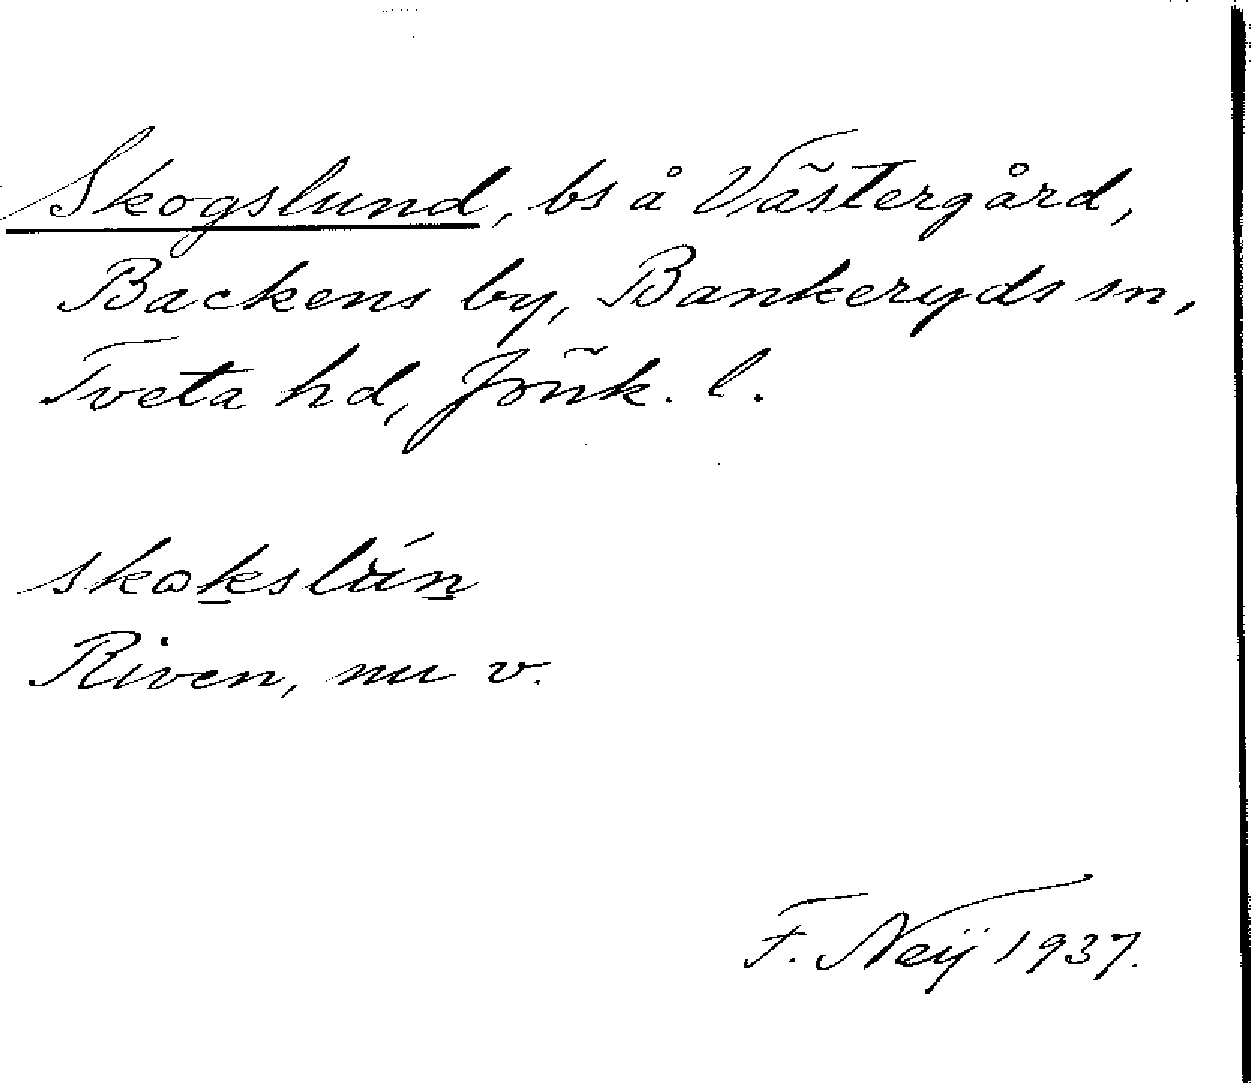 Skogslund, bs å Västergård,
Backens by, Bankeryds sn,
Tveta hd, Jönk. l.
Riven, nu v.
F. Neij 1937.